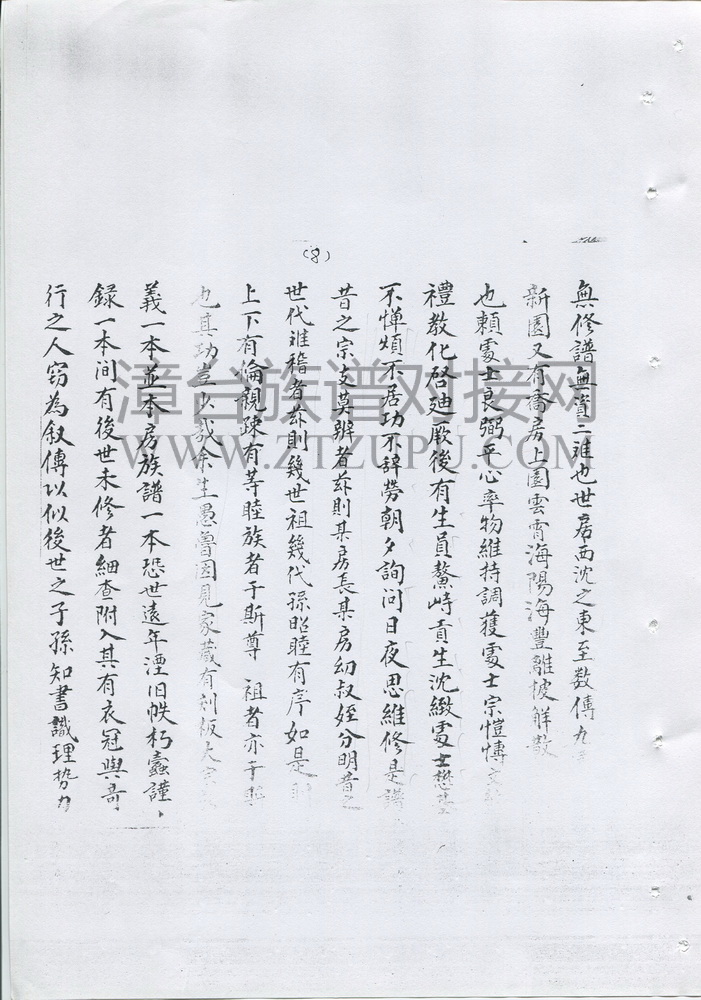 (8)
無修譜無資二难也世居西沈之東至数傳九
新園又有喬房上園雲霄海陽海豐離披觧散
也賴處士良弼平心率物維持調獲處士宗愷博
禮教化啓廸厥後有生員鰲峙貢生沈緻處士懋
不憚煩不居功不辞勞朝夕詢問日夜思維修是譜
昔之宗支莫辨者茲則某房長某房幼叔姪分明昔之
世代难稽者茲則幾世祖幾代孫昭睦有序如是則
上下有倫親疎有等睦族者于斯尊 祖者亦于
也其功豈少哉余生愚魯因見家蔵有刻板大宗
義一本並本房族譜一本恐世遠年湮旧帙朽蠹謹
録一本间有後世未修者細查附入其有衣冠與奇
行之人窃為叙傳以似後世之子孫知書識理势力
漳台族谱对接网
WWW.ZTZUPU.COM